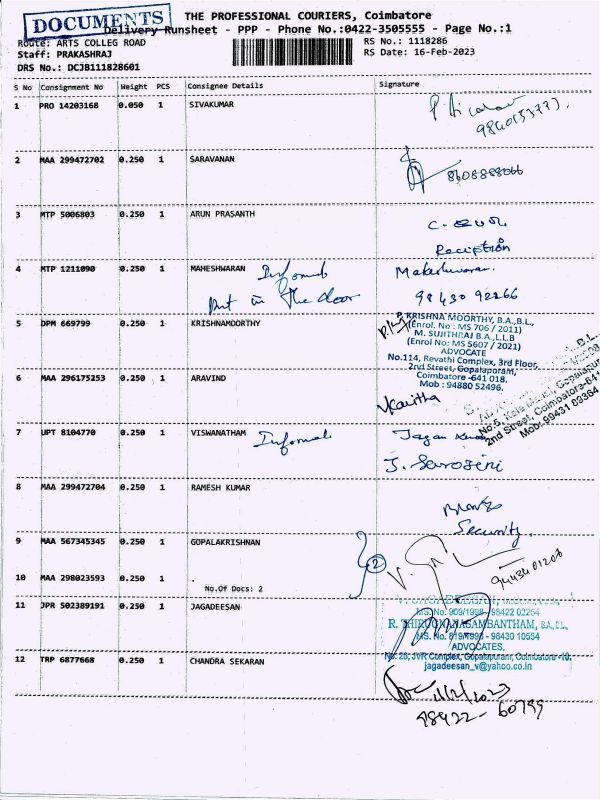 DOCUMENTS
THE PROFESSIONAL COURIERS, Coimbatore
Delivery Runsheet - PPP - Phone No.:0422-3505555 - Page No.:1
Route: ARTS COLLEG ROAD
RS No.: 1118286
Staff: PRAKASHRAJ
RS Date: 16-Feb-2023
DRS No.: DCJB111828601
S No Consignment No Weight PCS Consignee Details Signature
1 PRO 14203168 0.050 1 SIVAKUMAR
2 MAA 299472702 0.250 1 SARAVANAN
8608888066
3 MTP 5006803 0.250 1 ARUN PRASANTH
Reception
4 MTP 1211090 0.250 1 MAHESHWARAN Informed Maheshwaran.
Put in the door 98430 92266
5 DPM 669799 0.250 1 KRISHNAMOORTHY
P. KRISHNA MOORTHY, B.A.,B.L.,
(Enrol. No : MS 706 / 2011)
M. SUJITHRAJ B.A.,L.L.B
(Enrol No: MS 5607 / 2021)
ADVOCATE
No.114, Revathi Complex, 3rd Floor,
2nd Street, Gopalapuram,
Coimbatore -641 018.
Mob : 94880 52496.
6 MAA 296175253 0.250 1 ARAVIND
Kavitha
2nd Street, Coimbatore-641
Mob: 99431 09364
7 UPT 8104770 0.250 1 VISWANATHAM Informed Jagan
J. Sarojini
8 MAA 299472704 0.250 1 RAMESH KUMAR
Security
9 MAA 567345345 0.250 1 GOPALAKRISHNAN
2
94434 01207
10 MAA 298023593 0.250 1 .
No.Of Docs: 2
11 JPR 502389191 0.250 1 JAGADEESAN
MS. No. 909/1998 - 98422 02264
R. THIRUGNANASAMBANTHAM, B.A.,B.L.,
MS. No. 819/1998 - 98430 10554
ADVOCATES,
No. 28, JVR Complex, Gopalapuram, Coimbatore -18.
jagadeesan_v@yahoo.co.in
12 TRP 6877668 0.250 1 CHANDRA SEKARAN
98422- 60799